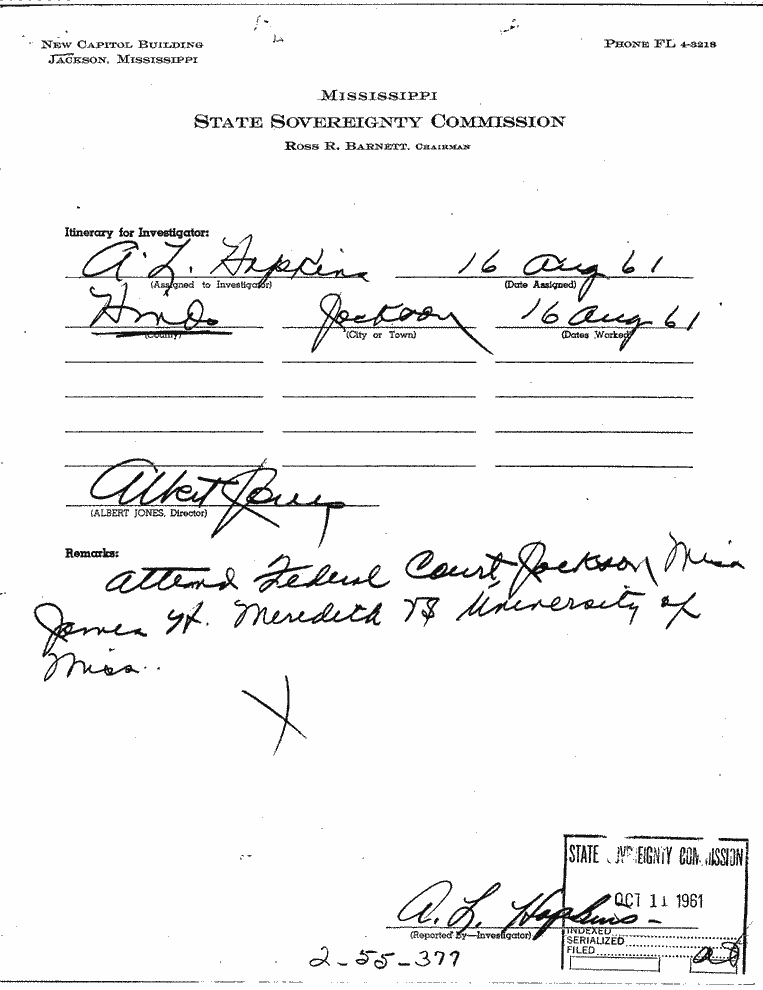 NEW CAPITOL BUILDING
JACKSON, MISSISSIPPI
PHONE FL 4-3218
MISSISSIPPI
STATE SOVEREIGNTY COMMISSION
ROSS R. BARNETT, CHAIRMAN
Itinerary for Investigator:
A. L. Hopkins 16 Aug 61
(Assigned to Investigator) (Date Assigned)
Hinds Jackson 16 Aug 61
(County) (City or Town) (Dates Worked)
Albert Jones
(ALBERT JONES, Director)
Remarks:
Attend Federal Court, Jackson, Miss
James H. Meredith VS University of
Miss.
STATE SOVEREIGNTY COMMISSION
OCT 11 1961
A. L. Hopkins
(Reported By—Investigator)
INDEXED
SERIALIZED
FILED
2-55-377